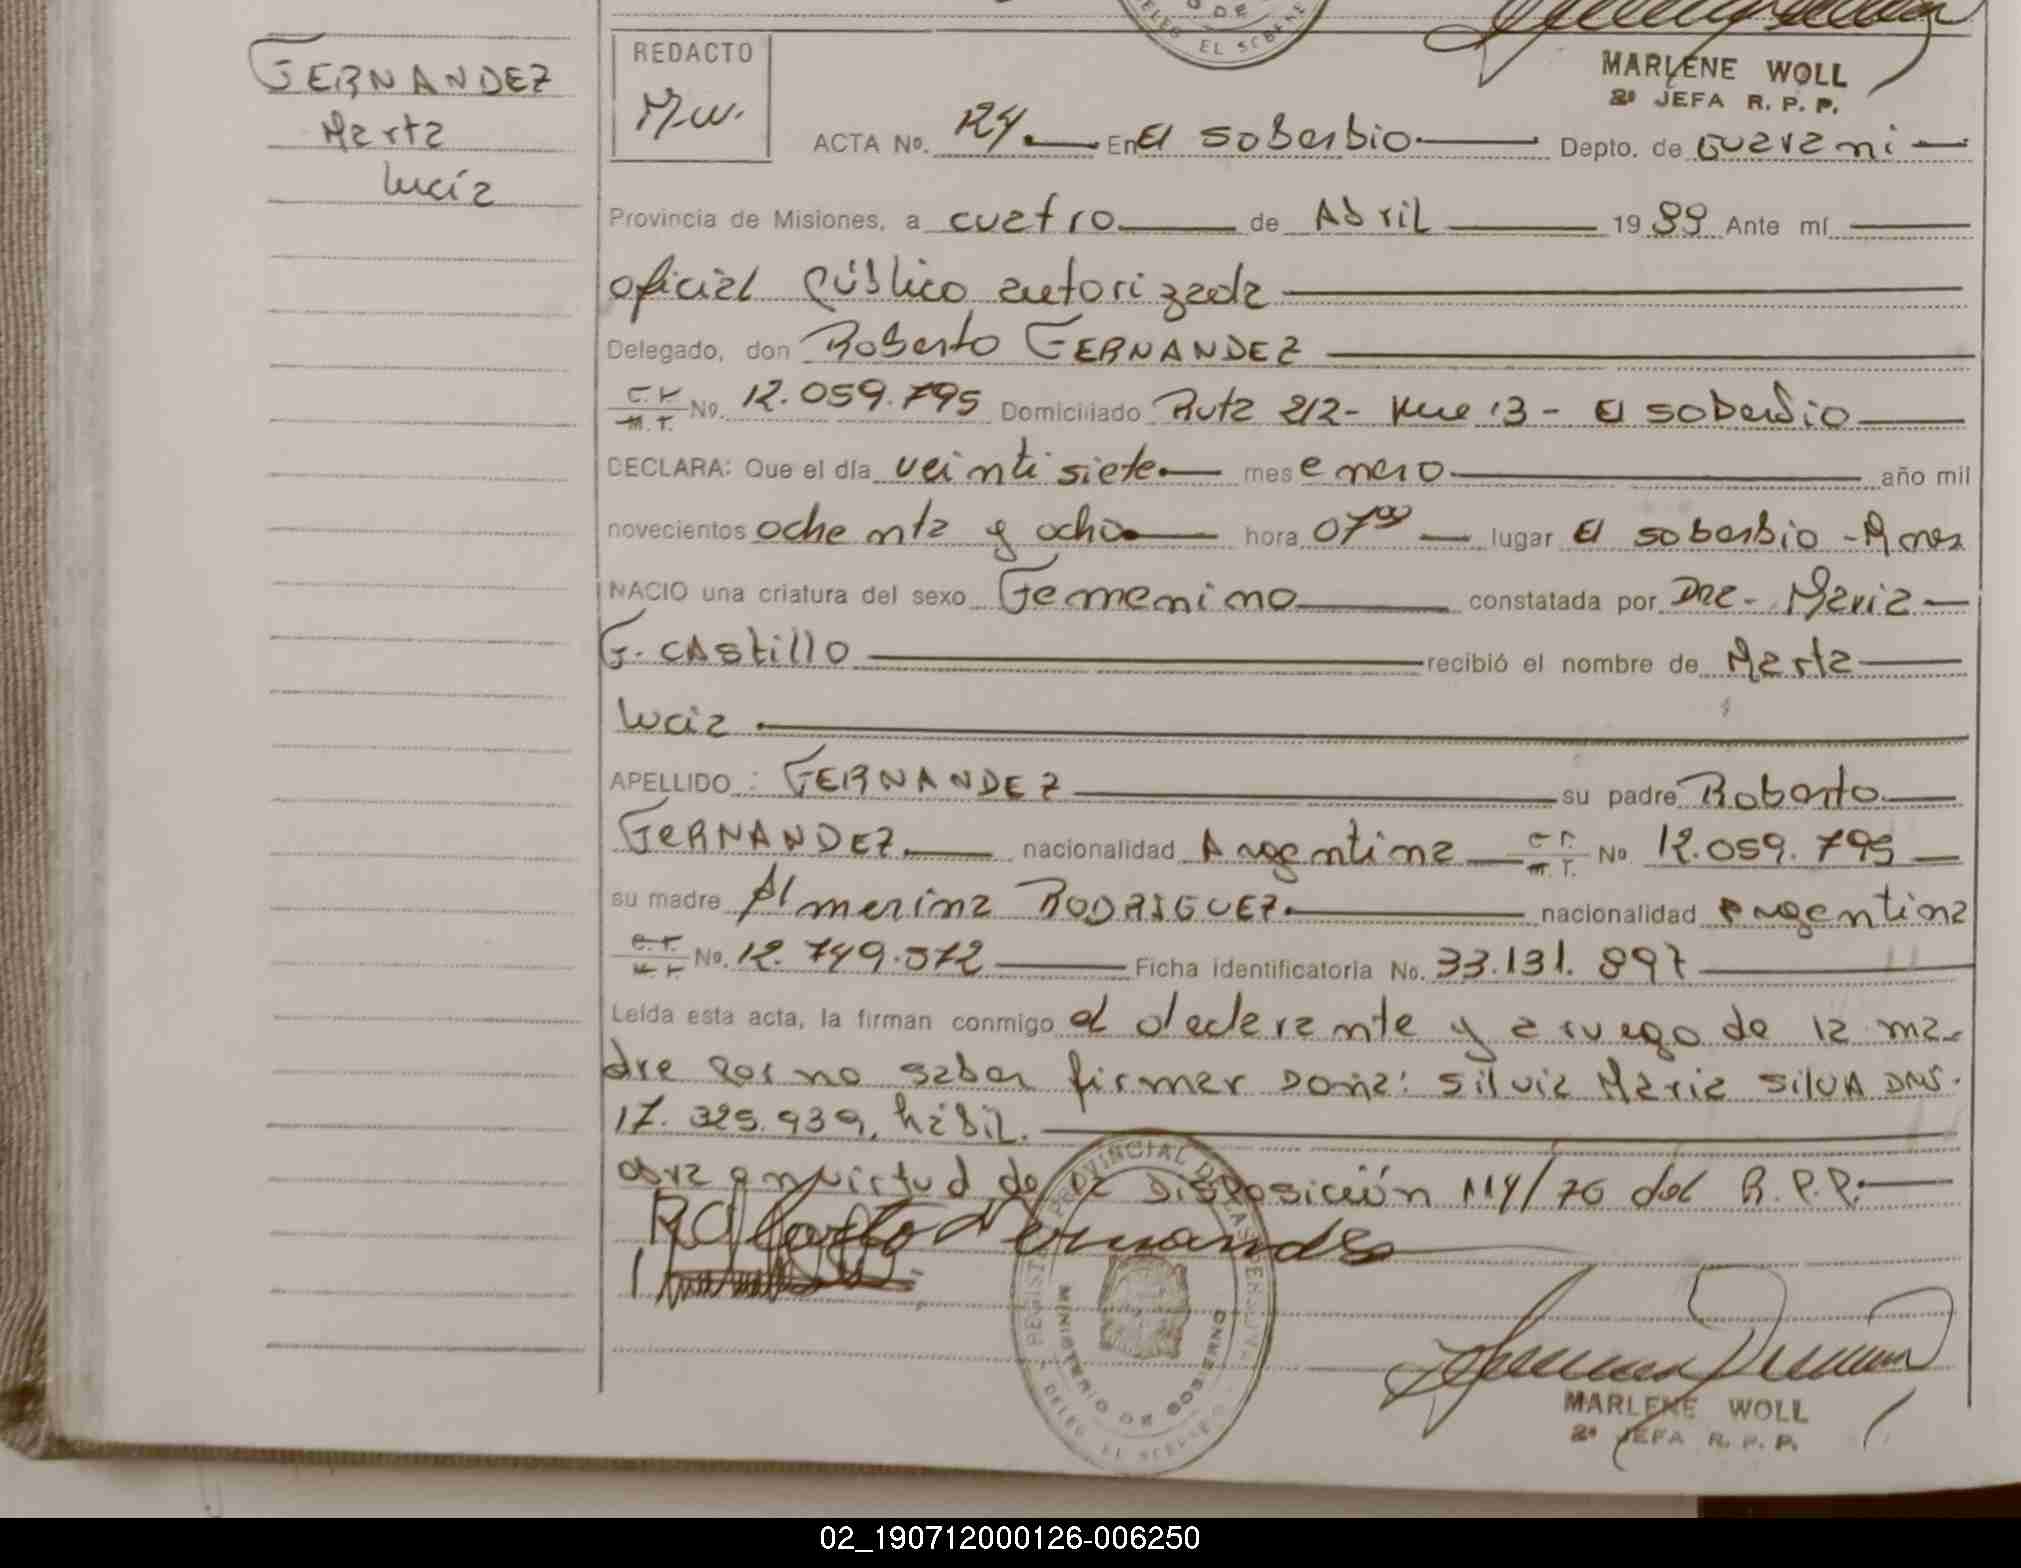 FERNANDEZ
Marta
Lucía
REDACTO
M.W.
MARLENE WOLL
2º JEFA R. P. P.
ACTA No. 124. En El soberbio Depto. de Guarani
Provincia de Misiones, a cuatro de Abril 1989 Ante mí
oficial público autorizada
Delegado, don Roberto FERNANDEZ
No. 12.059.795 Domiciliado Ruta 212- Km 13 - El soberbio
DECLARA: Que el día veintisiete mes enero año mil
novecientos ochenta y ocho hora 07⁰⁰ lugar El soberbio - Mnes
NACIO una criatura del sexo Femenino constatada por Dra. Maria
G. CAstillo recibió el nombre de Marta
Lucia
APELLIDO : FERNANDEZ su padre Roberto
FeRNANDEZ nacionalidad Argentina No 12.059.795
su madre Almerina RODRIGUEZ nacionalidad argentina
No. 12.749.572 Ficha identificatoria No. 33.131.897
Leída esta acta, la firman conmigo el declarante y a ruego de la ma-
dre por no saber firmar Doña: Silvia Maria SilvA DNI.
17.325.939, hábil.
obra en virtud de la Disposición 114/76 del R.P.P.
Roberto Fernandes
REGISTRO PROVINCIAL DE LAS PERSONAS
MINISTERIO DE GOBIERNO
DELEG. EL SOBERBIO
MARLENE WOLL
2º JEFA R. P. P.
02_190712000126-006250